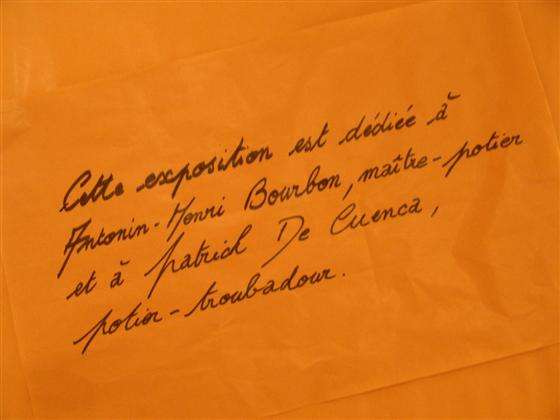 Cette exposition est dédiée à
Antonin-Henri Bourbon, maître-potier
et à Patrick De Cuenca,
potier-troubadour.